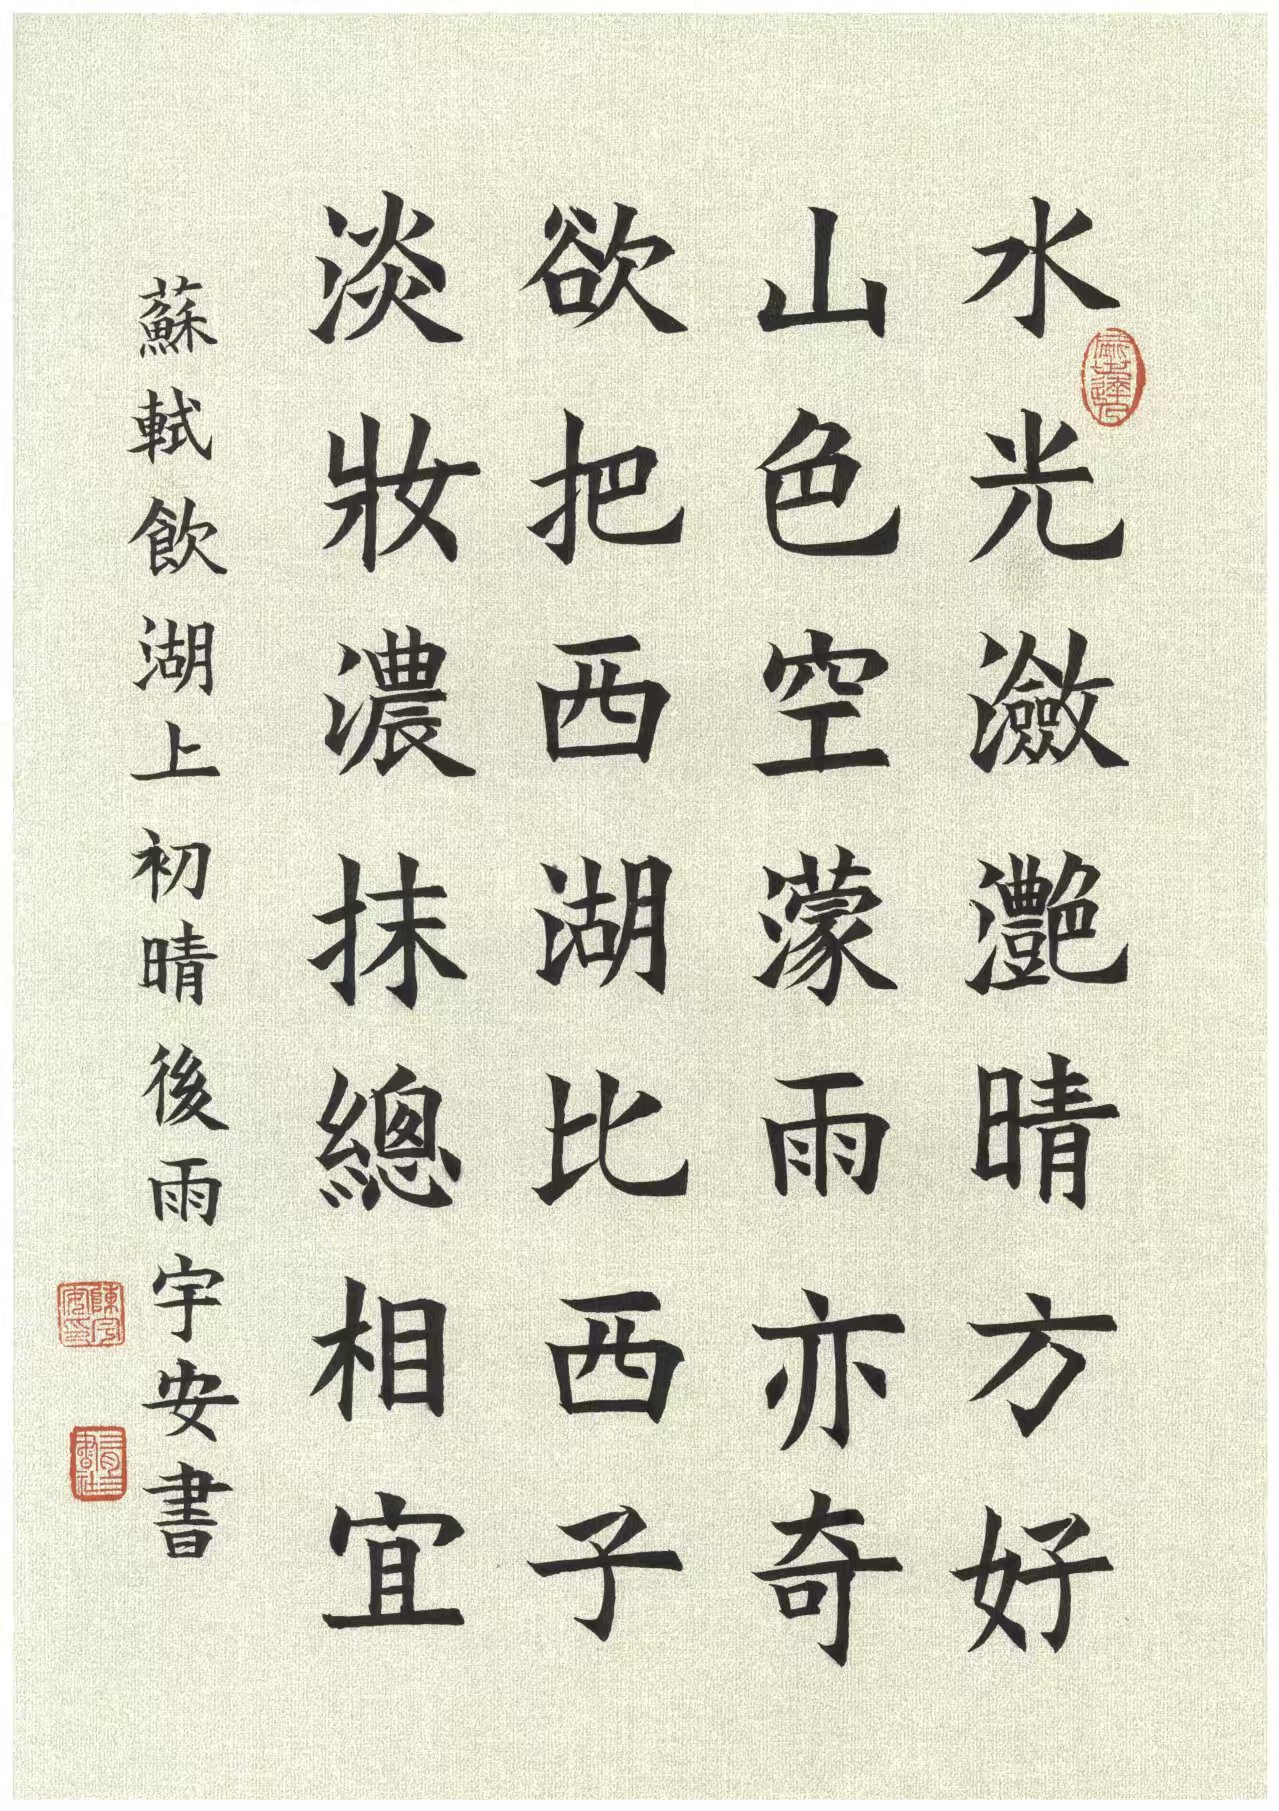 水光瀲灩晴方好
山色空濛雨亦奇
欲把西湖比西子
淡妝濃抹總相宜
蘇軾飲湖上初晴後雨宇安書
陳宇安印